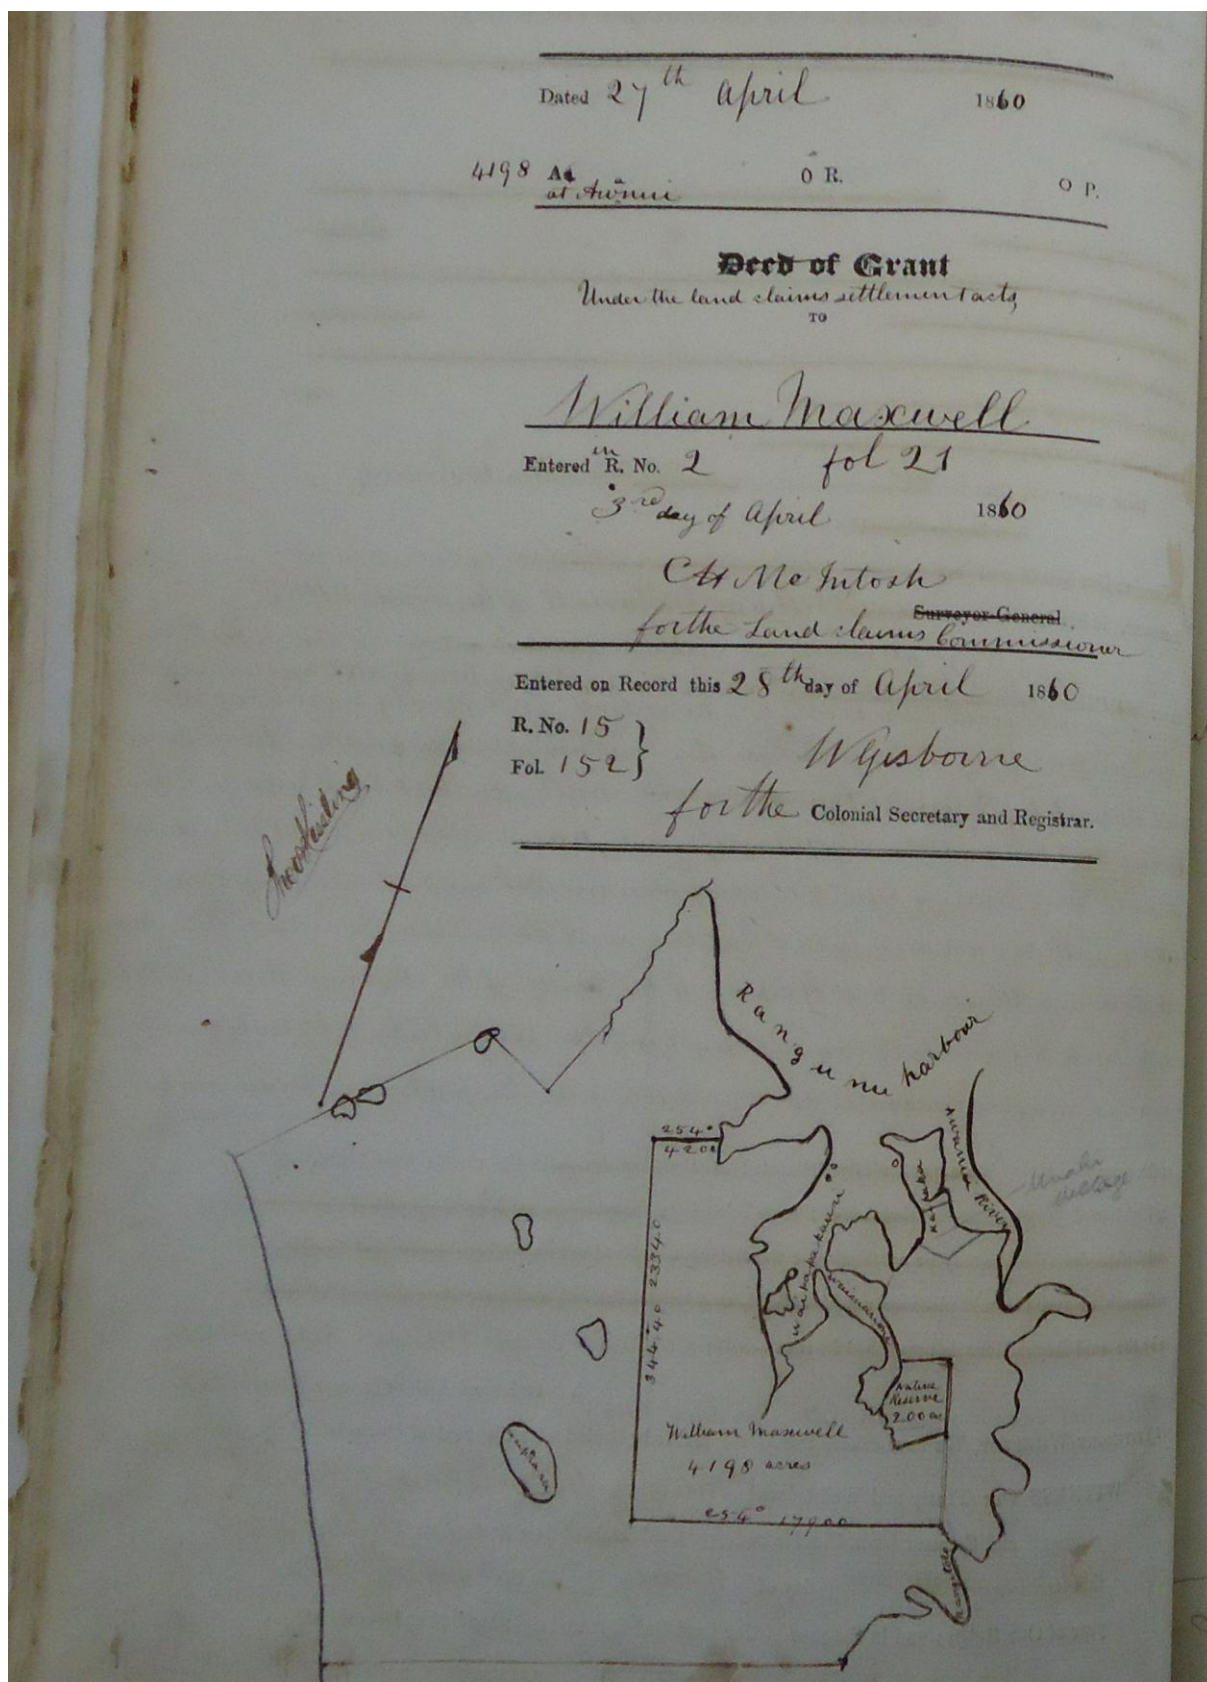 Dated 27th April 1860
4198 A. 0 R. 0 P.
at Awanui
Deed of Grant
Under the land claims settlement acts,
TO
William Maxwell
Entered in R. No. 2 fol 21
3rd day of April 1860
CH McIntosh
Surveyor-General
for the Land claims Commissioner
Entered on Record this 28th day of April 1860
R. No. 15
Fol. 152
W Gisborne
for the Colonial Secretary and Registrar.
Rangunu harbour
254°
4200
Awanui River
village
344°.40 23340
Native
Reserve
200 a
William Maxwell
4198 acres
254° 17900